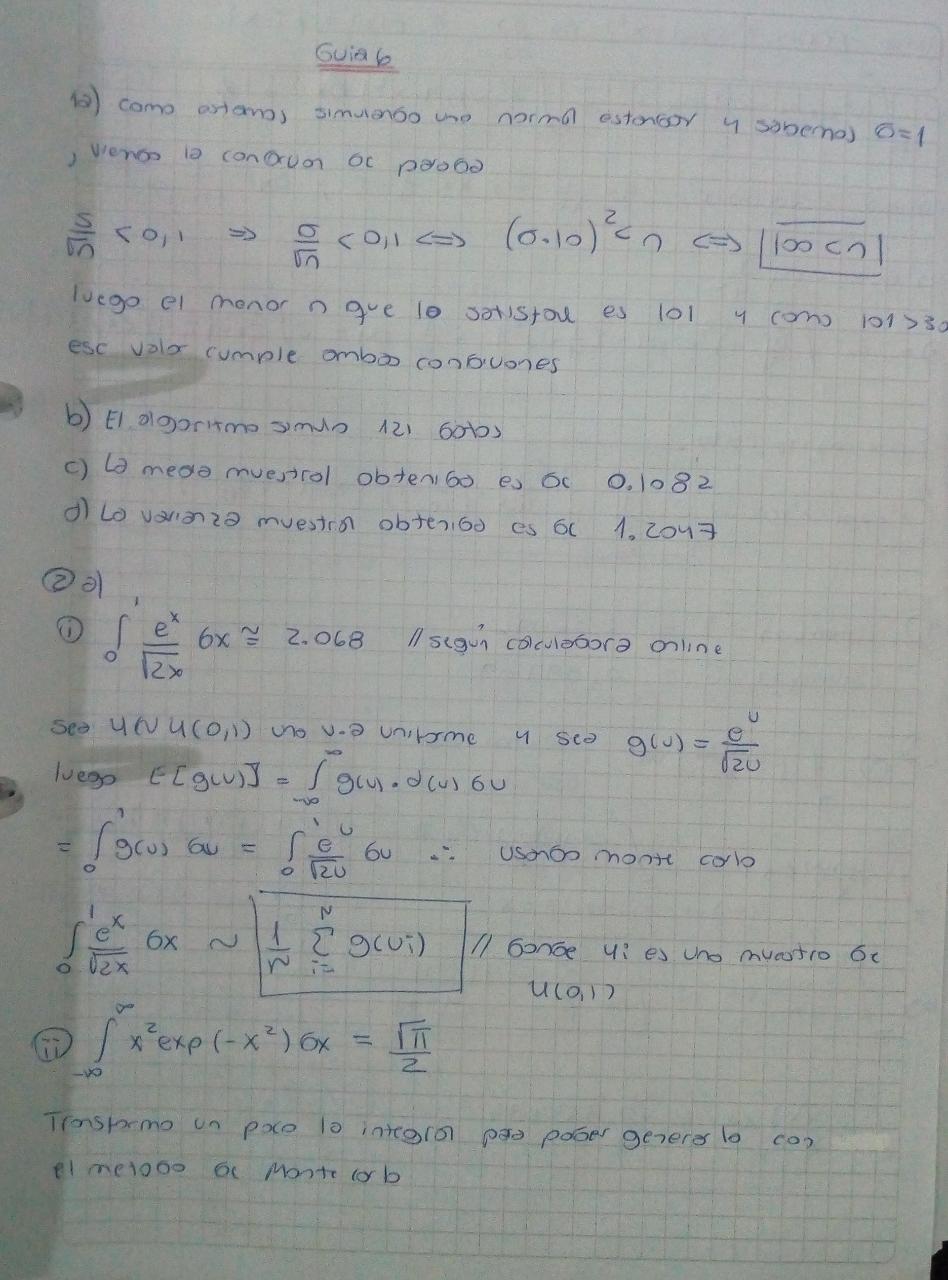 Guia 6
1a) Como estamos simulando una normal estandar y sabemos σ=1
, viendo la condicion de parada
S/√n < 0,1 ⇒ σ/√n < 0,1 ⟺ (σ.10)² < n ⟺ 100 < n
luego el menor n que lo satisface es 101 y como 101>30
ese valor cumple ambas condiciones
b) El algoritmo simulo 121 datos
c) La media muestral obtenida es de 0.1082
d) La varianza muestral obtenida es de 1.2047
② a)
① ∫₀¹ e^x/√2x dx ≅ 2.068 // según calculadora online
sea U∼U(0,1) una v.a uniforme y sea g(u) = e^u/√2u
luego E[g(U)] = ∫_{-∞}^{∞} g(u).d(u) du
= ∫₀¹ g(u) du = ∫₀¹ e^u/√2u du ∴ usando monte carlo
∫₀¹ e^x/√2x dx ∼ 1/N Σ_{i=1}^{N} g(ui) // donde ui es una muestra de
U(0,1)
ⅱ ∫_{-∞}^{∞} x² exp(-x²) dx = √π/2
Transformo un poco la integral para poder generarla con
el metodo de Monte Carlo